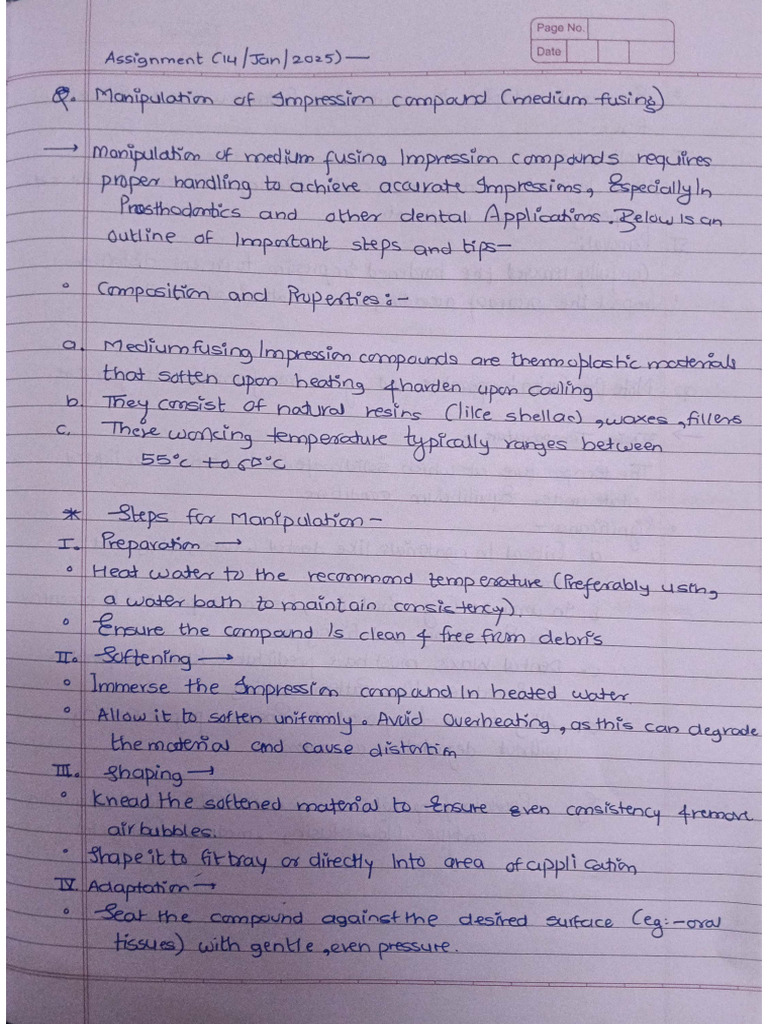 Page No.
Date
Assignment (14/Jan/2025) —
Q. Manipulation of Impression compound (medium fusing)
→ Manipulation of medium fusing Impression compounds requires
proper handling to achieve accurate Impressions, Especially In
Prosthodontics and other dental Applications. Below is an
outline of Important steps and tips-
° Composition and Properties:-
a. Medium fusing Impression compounds are thermoplastic materials
that soften upon heating & harden upon cooling
b. They consist of natural resins (like shellac), waxes, fillers
c. There working temperature typically ranges between
55°C to 60°C
* Steps for Manipulation -
I. Preparation →
° Heat water to the recommond temperature (Preferably using
a water bath to maintain consistency).
° Ensure the compound Is clean & free from debris
II. Softening →
° Immerse the Impression compound In heated water.
° Allow it to soften uniformly. Avoid Overheating, as this can degrade
the material and cause distortion
III. Shaping →
° Knead the softened material to Ensure even consistency & remove
air bubbles.
° Shape it to fit tray or directly Into area of application
IV. Adaptation →
° Seat the compound against the desired surface (eg:- oral
tissues) with gentle, even pressure.